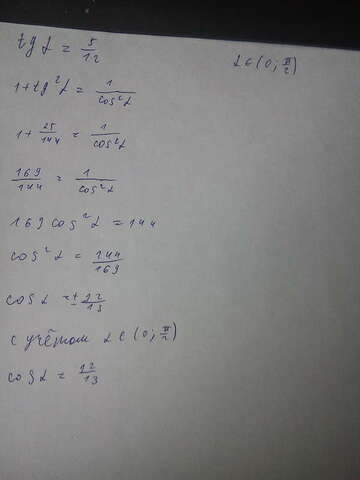 tg α = 5/12    α ∈ (0; π/2)
1 + tg²α = 1/cos²α
1 + 25/144 = 1/cos²α
169/144 = 1/cos²α
169 cos²α = 144
cos²α = 144/169
cos α = ± 12/13
с учётом α ∈ (0; π/2)
cos α = 12/13